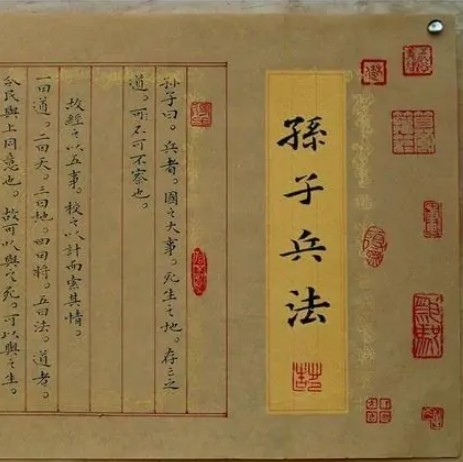 孫子兵法
孫子曰。兵者。國之大事。死生之地。存亡之
道。不可不察也。
故經之以五事。校之以計而索其情。
一曰道。二曰天。三曰地。四曰將。五曰法。道者。
令民與上同意也。故可以與之死。可以與之生。